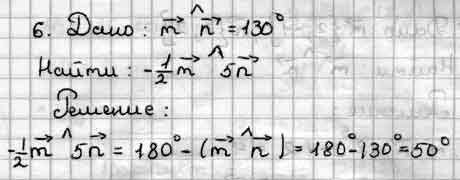 6. Дано: m⃗ ^ n⃗ = 130°
Найти: -1/2 m⃗ ^ 5n⃗
Решение:
-1/2 m⃗ ^ 5n⃗ = 180° - (m⃗ ^ n⃗) = 180° - 130° = 50°